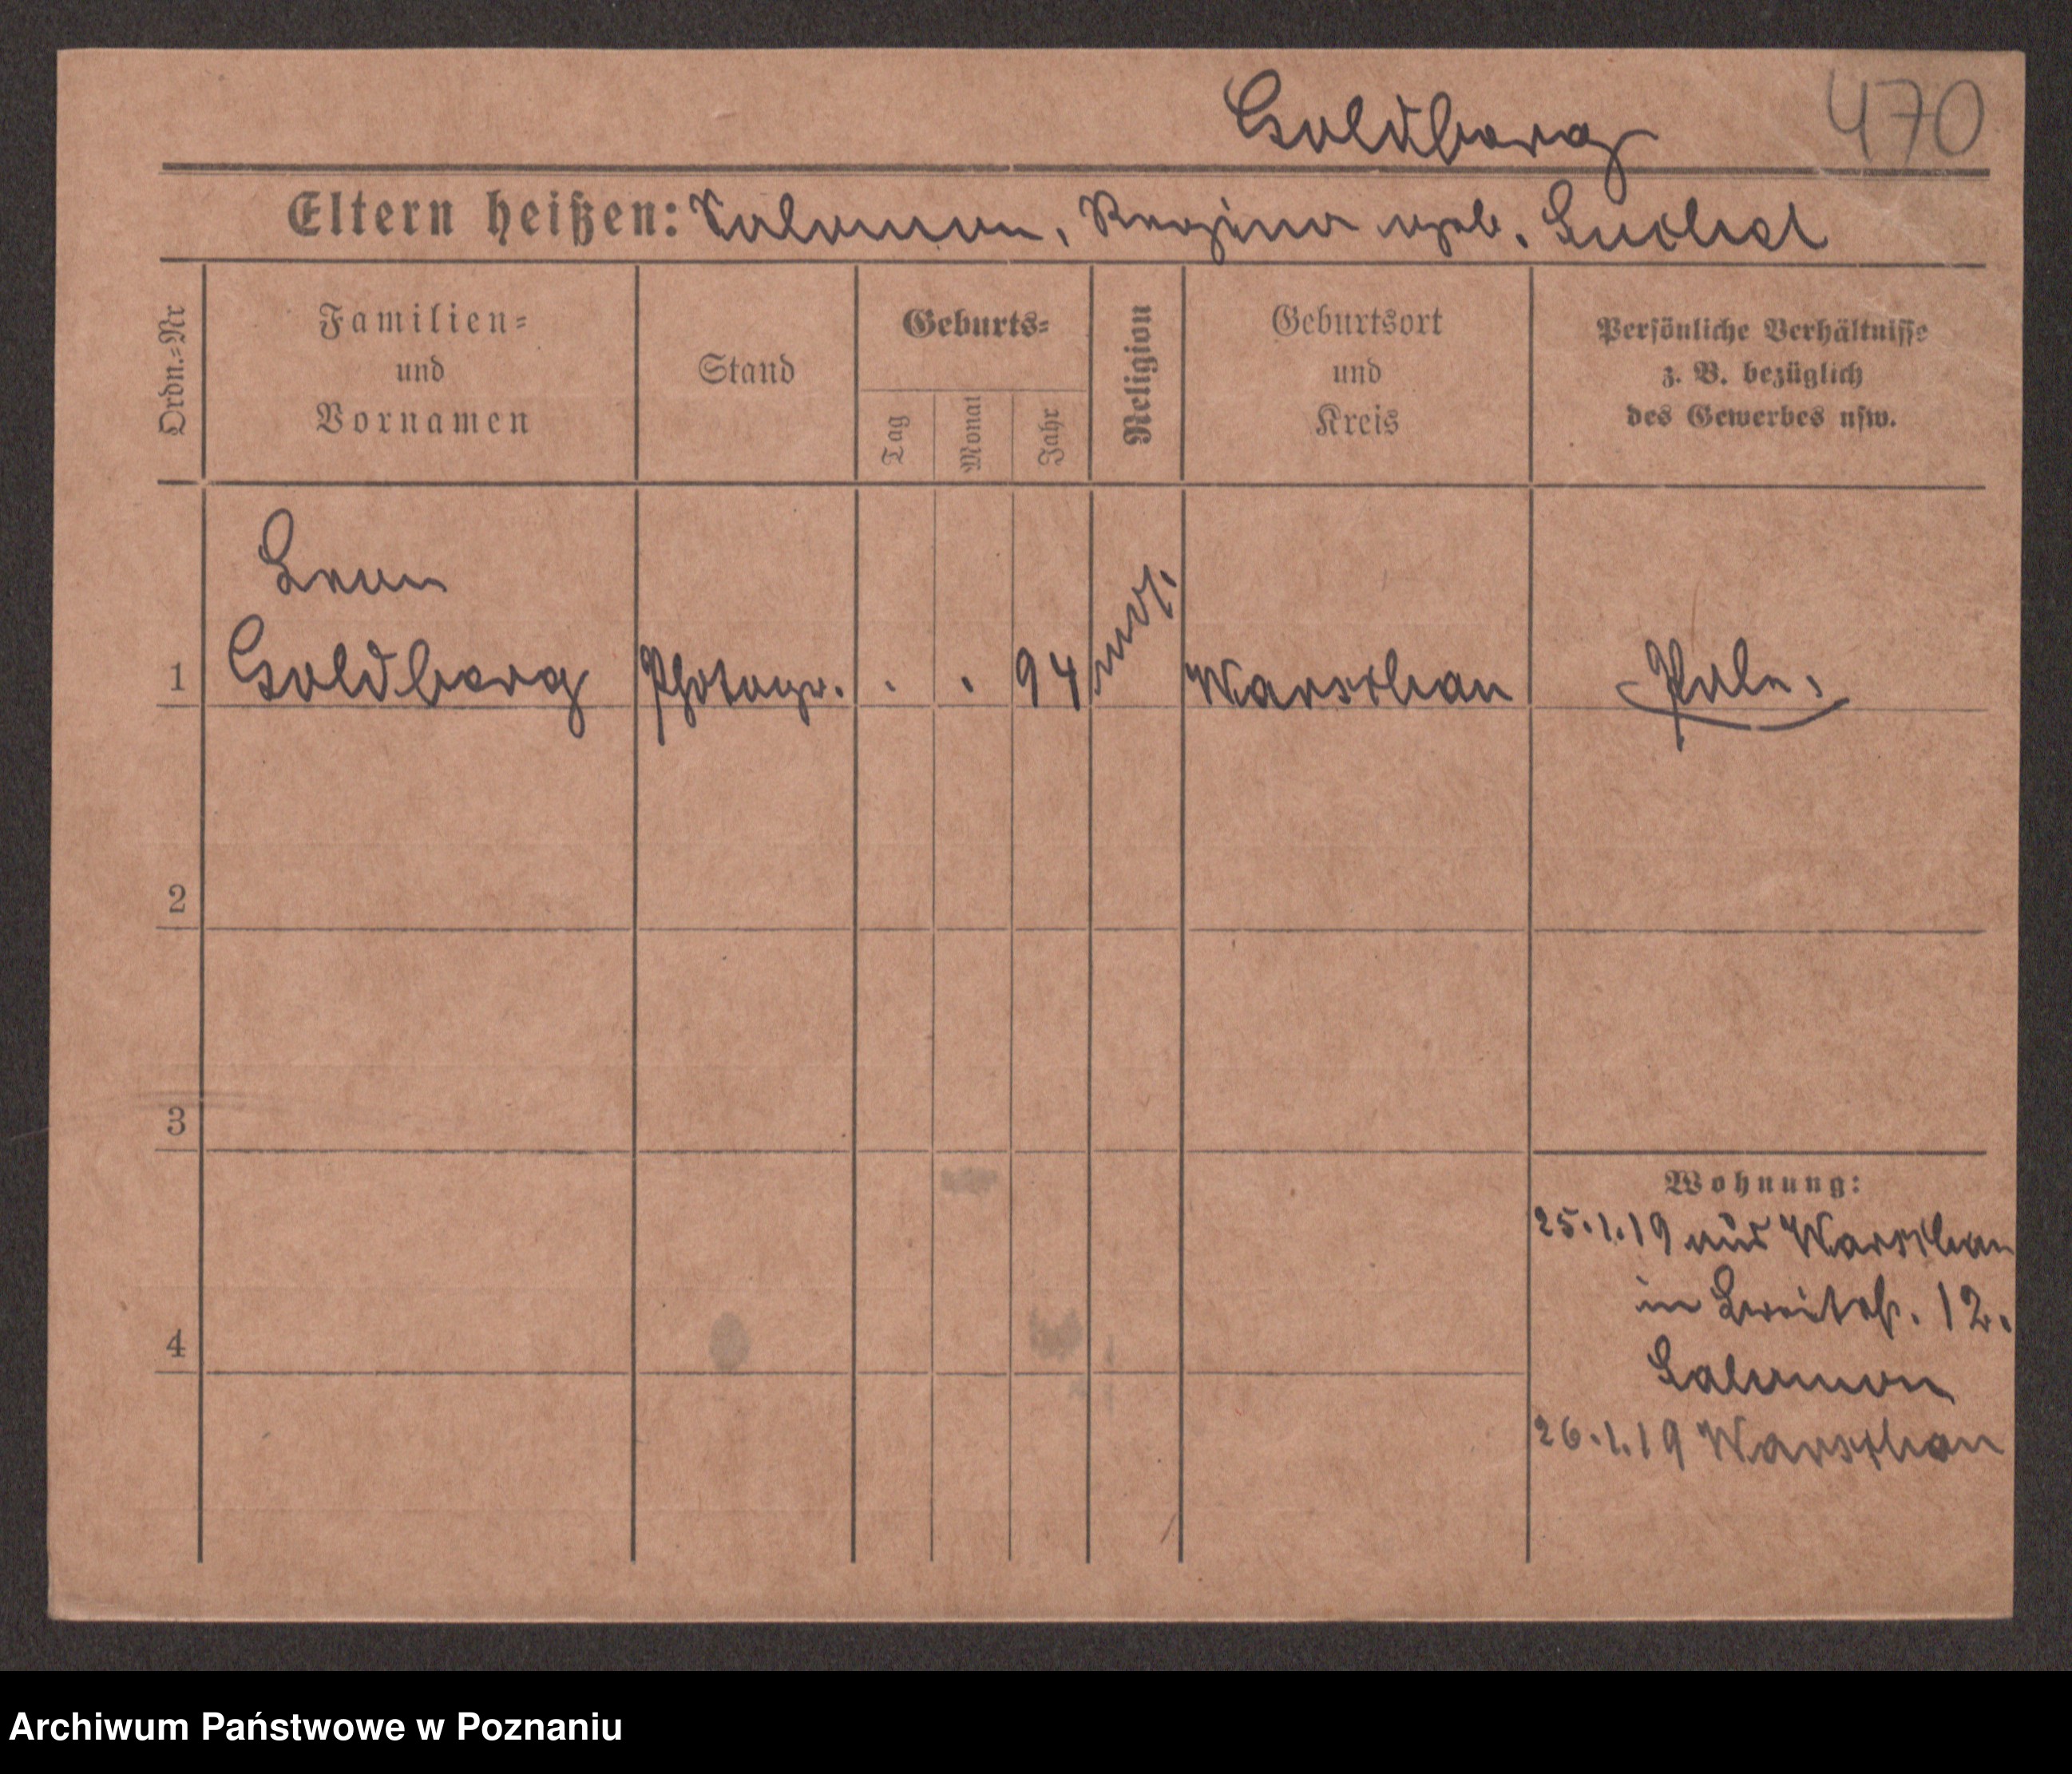 Goldberg 470
Eltern heißen: Salomon, Regina geb.
Ordn.=Nr
Familien=
und
Vornamen
Stand
Geburts=
Tag
Monat
Jahr
Religion
Geburtsort
und
Kreis
Persönliche Verhältnisse
z. B. bezüglich
des Gewerbes usw.
Leon
1 Goldberg Photogr. . . 94 mos. Warschau Pole.
2
3
4
Wohnung:
25.1.19 aus Warschau
in Breitestr. 12.
Salomon
26.1.19 Warschau
Archiwum Państwowe w Poznaniu